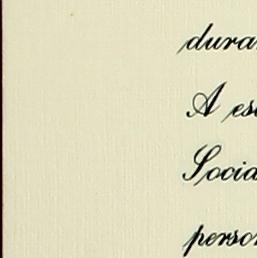 dura
A es
Socia
perso